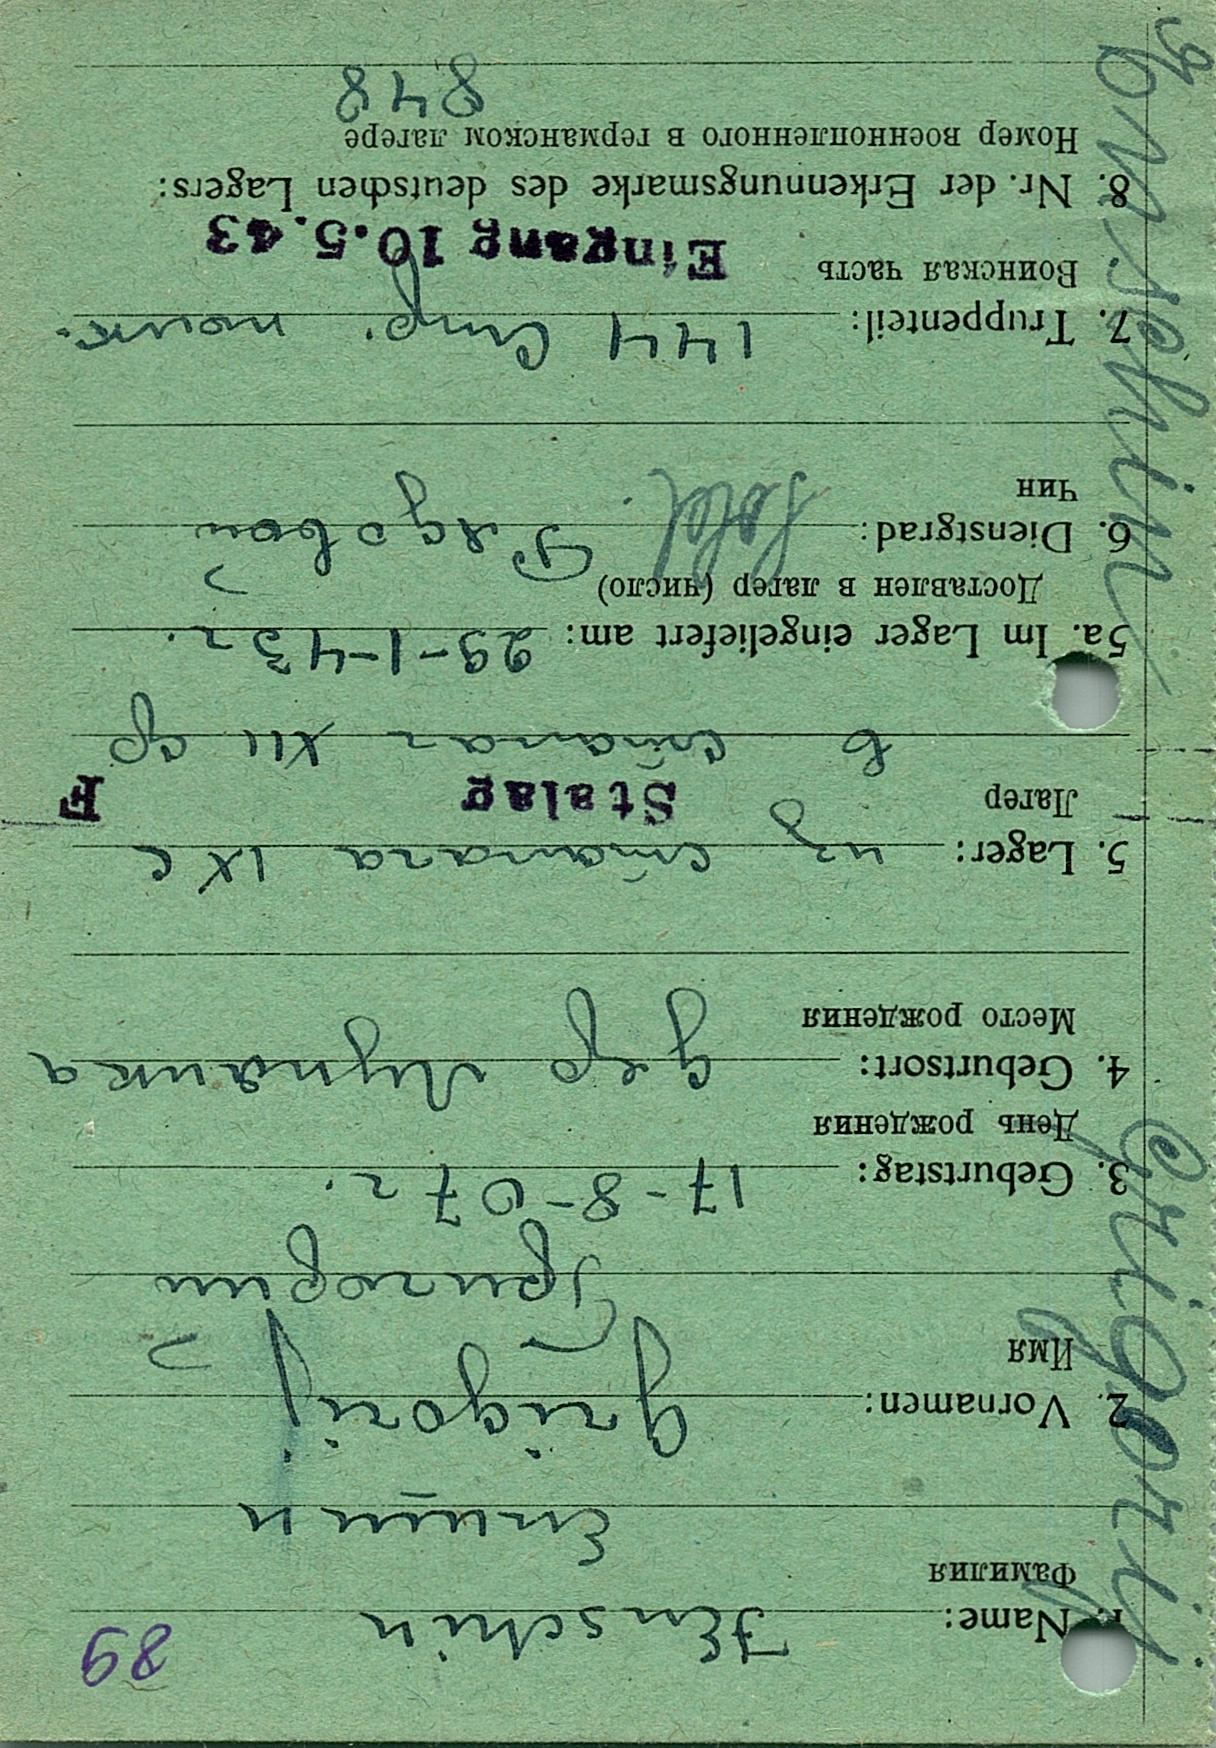 89
1. Name: Jenschin
Фамилия
Еншин
2. Vornamen: Grigorij
Имя
Григорий
3. Geburtstag: 17-8-07 г.
День рождения
4. Geburtsort: дер
Место рождения
5. Lager: из сталага IX C
Лагер Stalag F
в сталаг XII ф
5a. Im Lager eingeliefert am: 29-1-43 г.
Доставлен в лагер (число)
6. Dienstgrad: Sold. Рядовой
Чин
7. Truppenteil: 144 Стр. полк.
Воинская часть Eingang 10.5.43
8. Nr. der Erkennungsmarke des deutschen Lagers:
Номер военнопленного в германском лагере
848
Grigorij